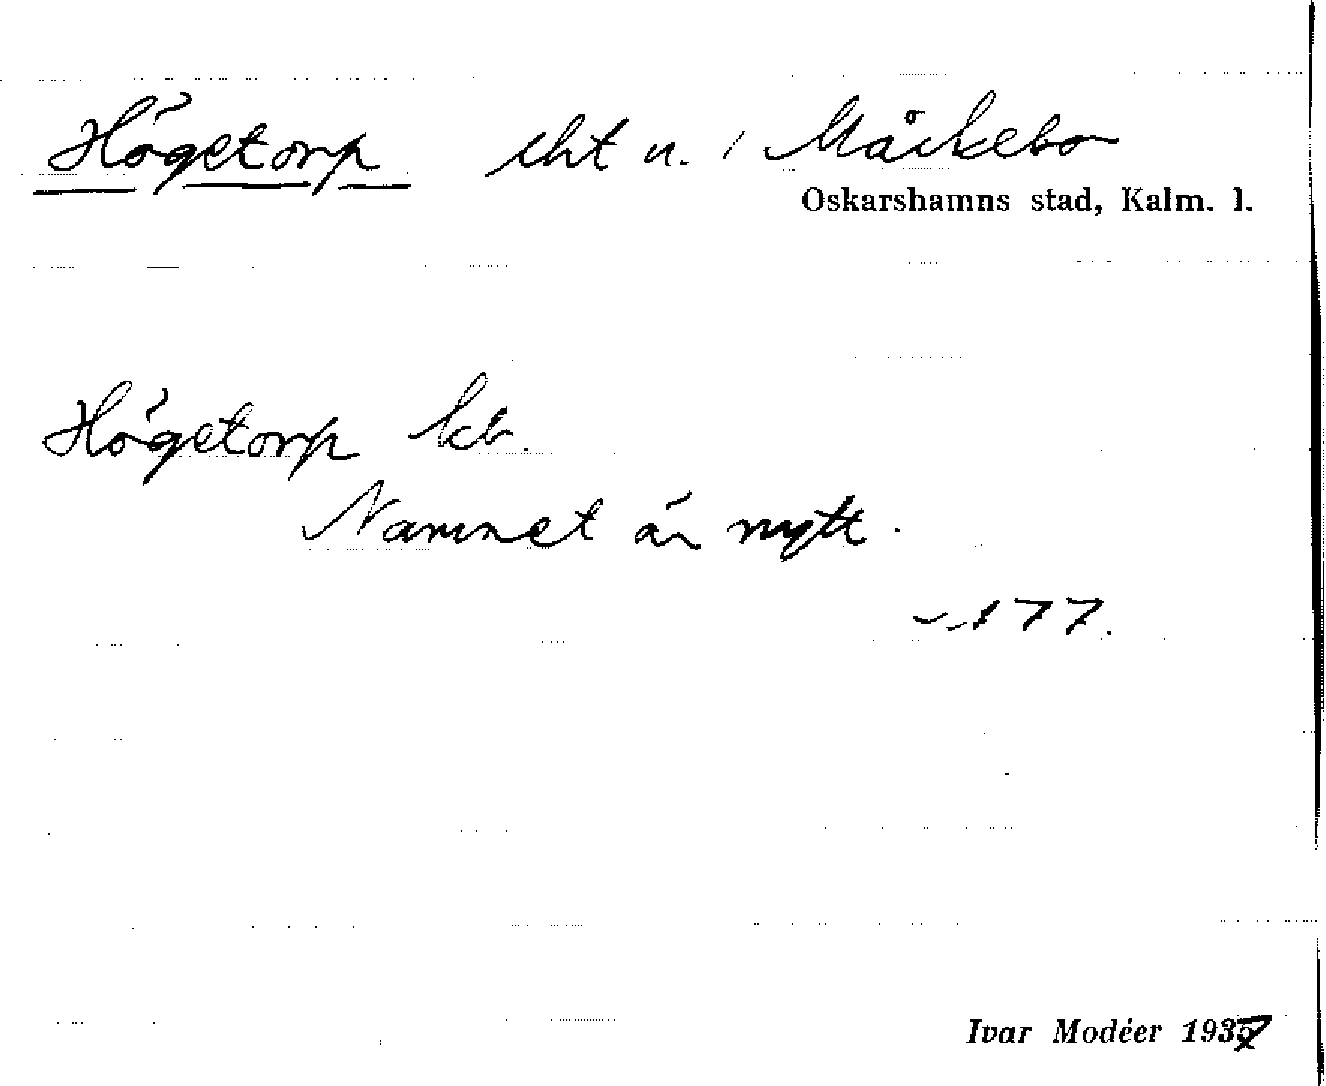 Högetorp lht u. / Måckebo
Oskarshamns stad, Kalm. l.
Högetorp kb.
Namnet är nytt.
177.
Ivar Modéer 1937